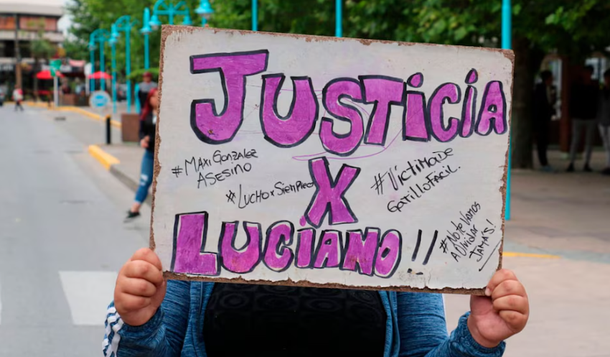 JUSTICIA
#MAXI GONZALEZ
ASESINO
*LUCHO x SIEMPRE
#VICTIMA DE
GATILLO FACIL.
X
LUCIANO!!
#No te VAMOS
A OLVIDAR
JAMÁS!